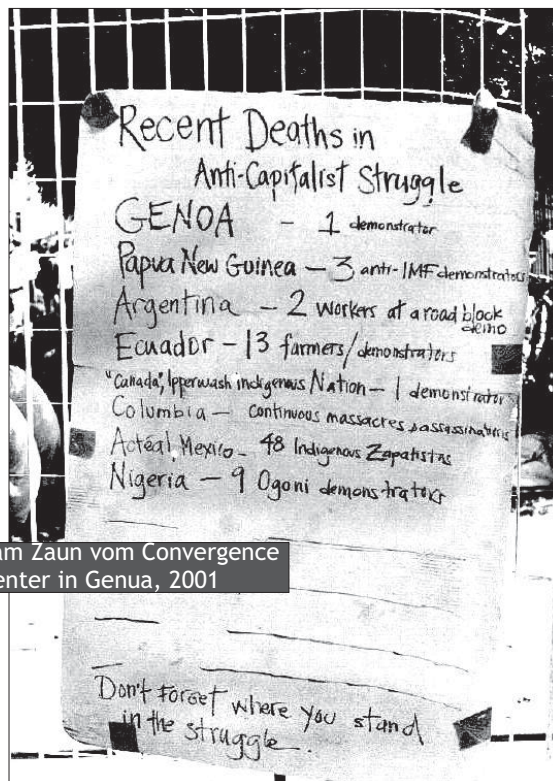 Recent Deaths in
Anti-Capitalist Struggle
GENOA - 1 demonstrator
Papua New Guinea - 3 anti-IMF demonstrators
Argentina - 2 workers at a road block
demo
Ecuador - 13 farmers/demonstrators
"Canada", Ipperwash indigenous Nation - 1 demonstrator
Columbia - continuous massacres & assassinations
Actéal, Mexico - 48 Indigenous Zapatistas
Nigeria - 9 Ogoni demonstrators
am Zaun vom Convergence
enter in Genua, 2001
Don't forget where you stand
in the struggle.